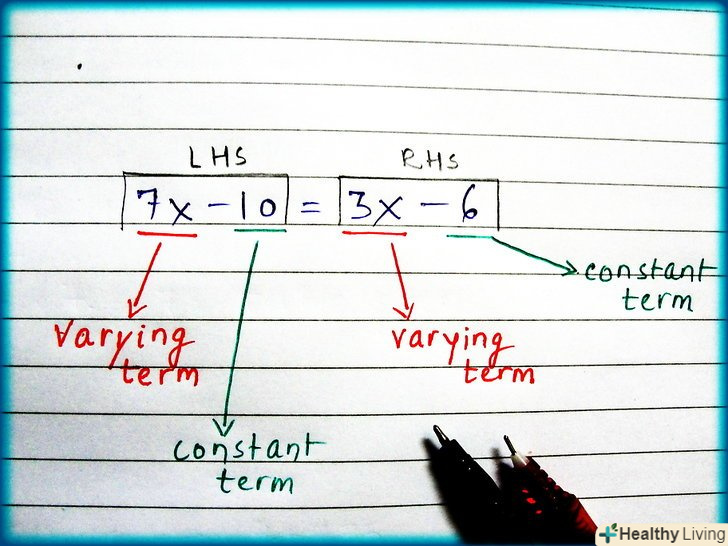 LHS RHS
7x - 10 = 3x - 6
constant
term
varying
term
varying
term
constant
term
Healthy Living